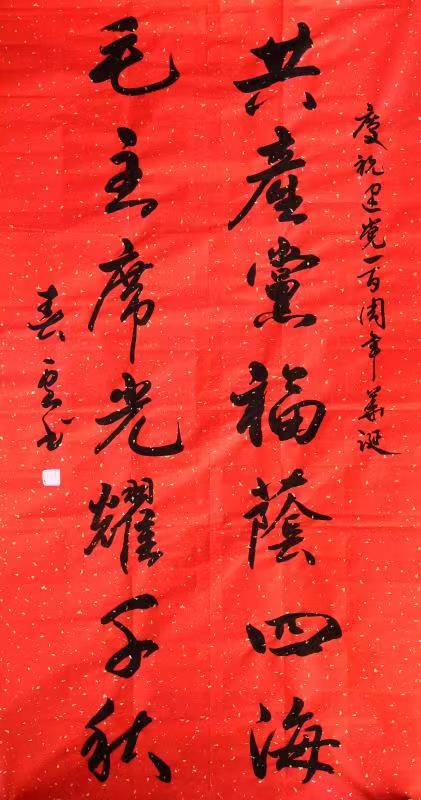 慶祝建党一百周年華诞
共產黨福蔭四海
毛主席光耀千秋
春雲书